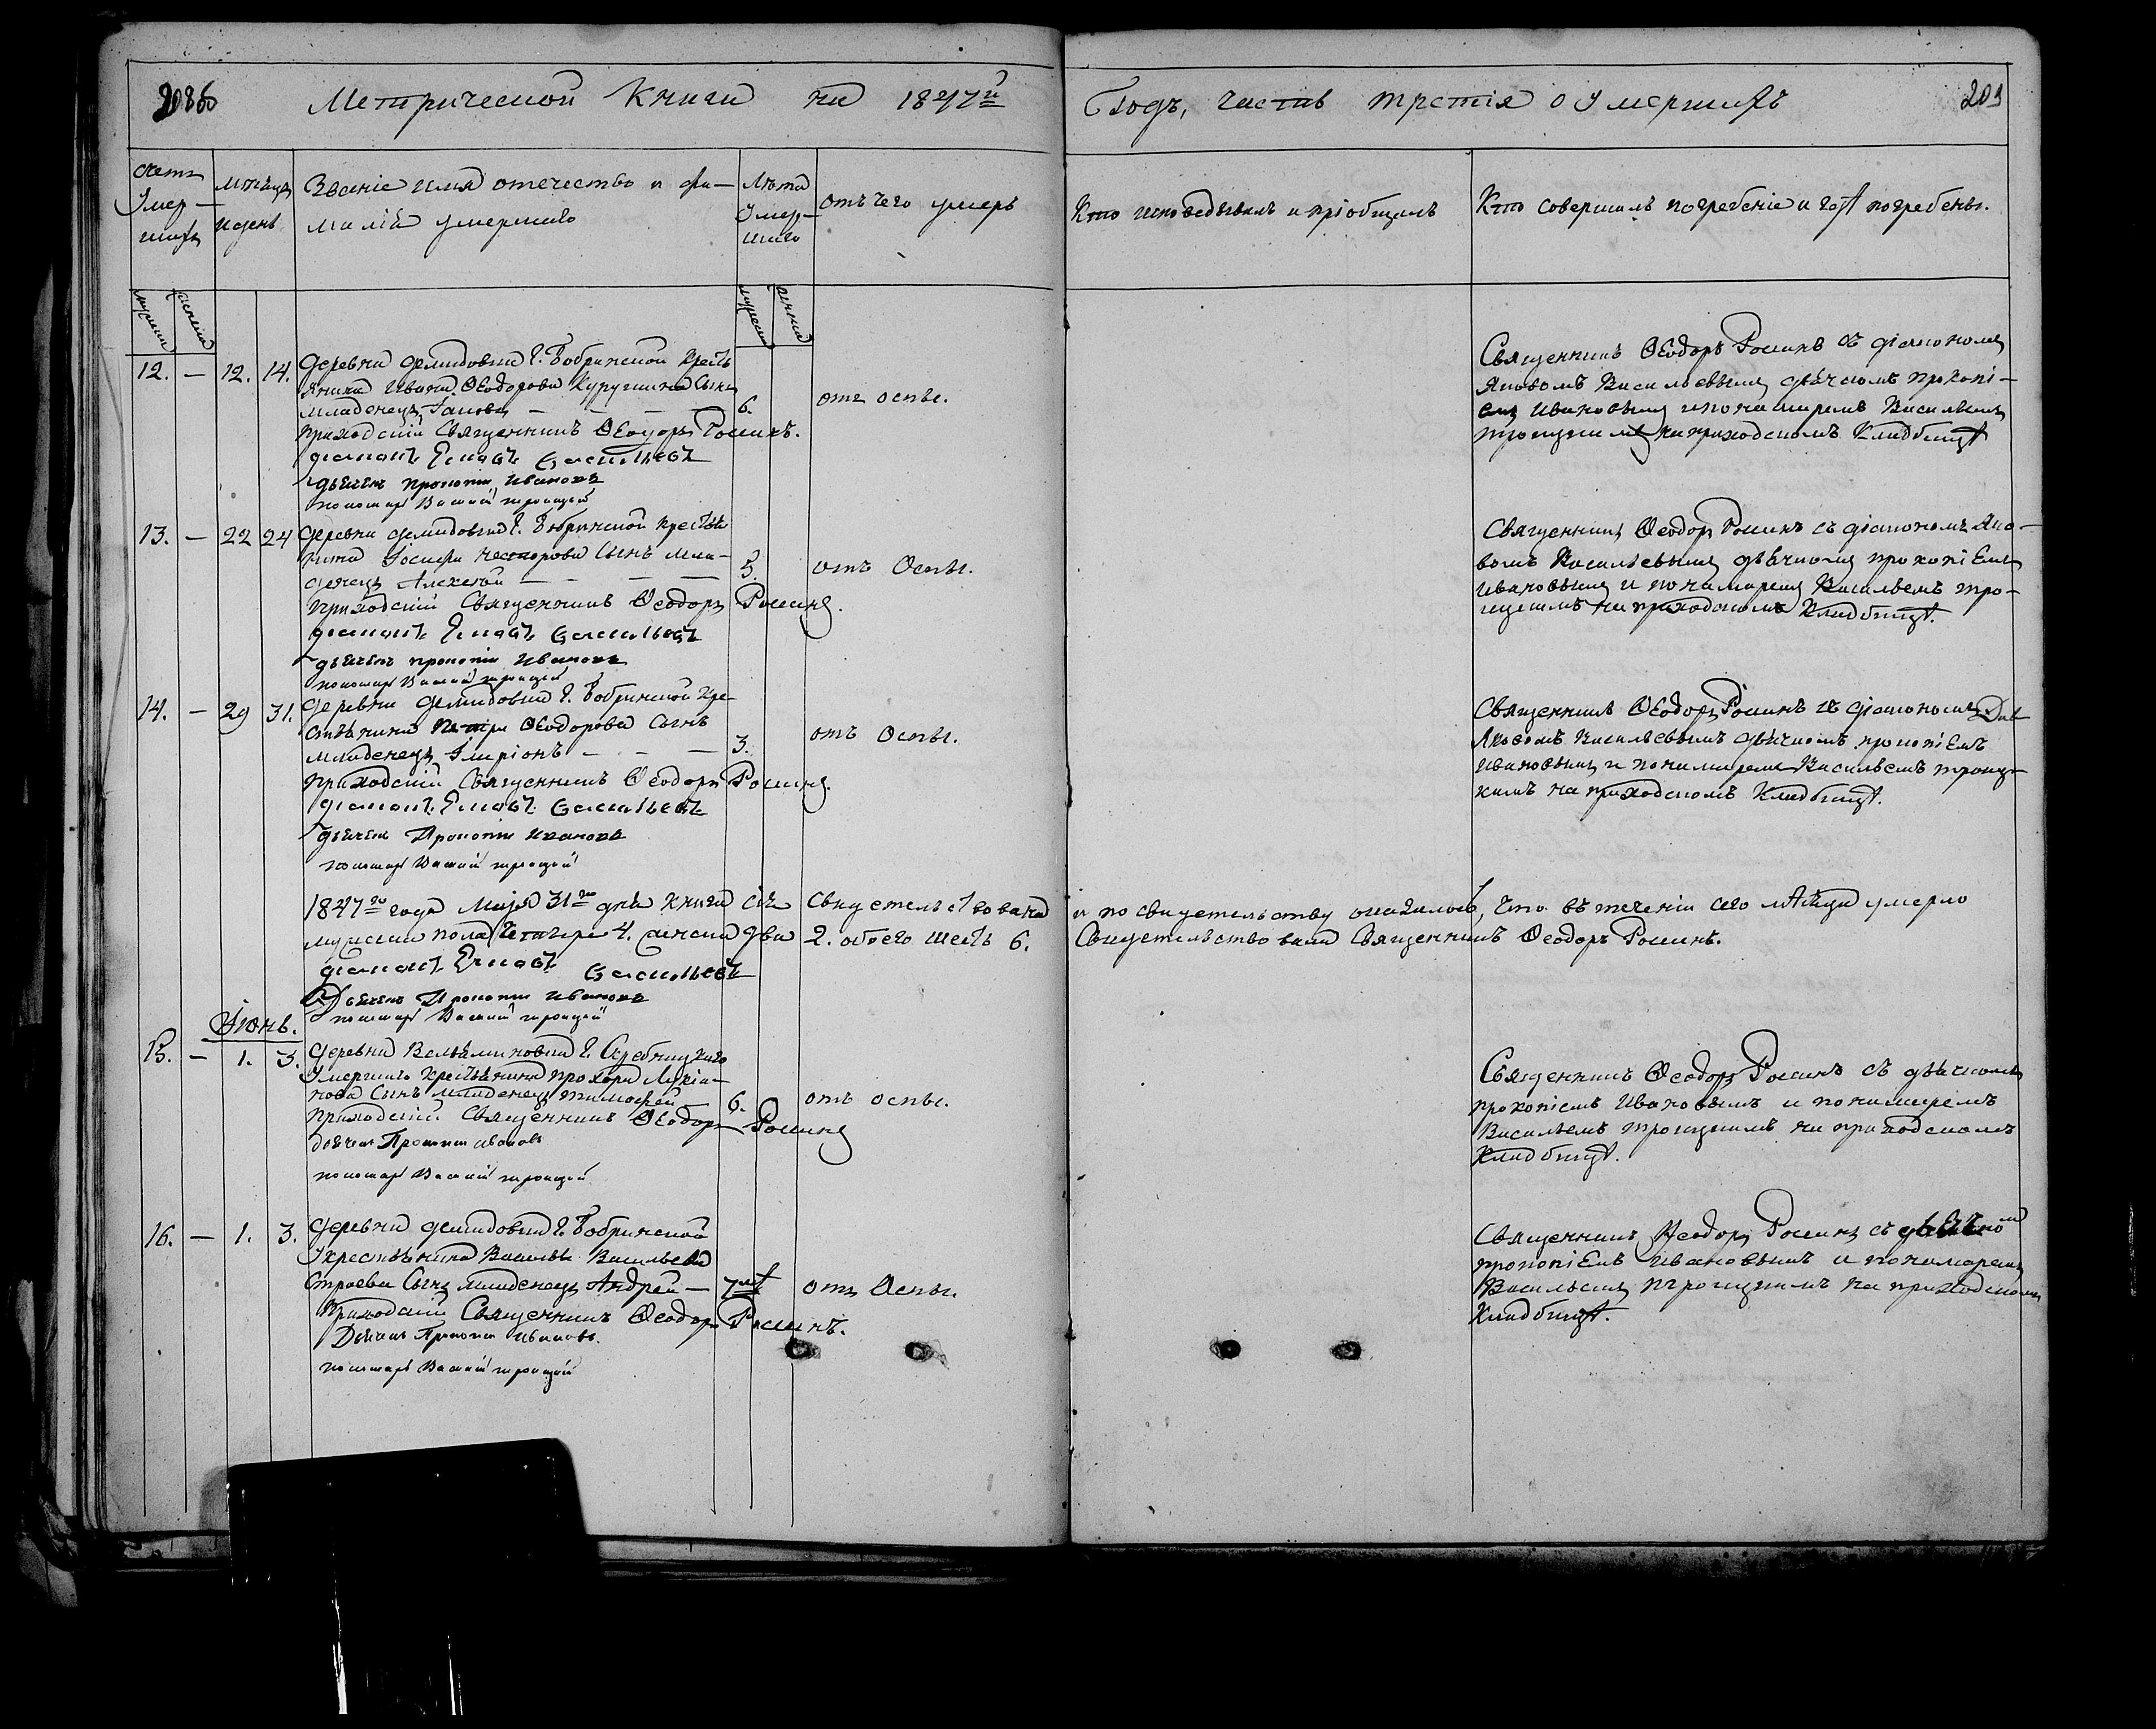 Метрической Книги на 1847й
Годъ, часть третія о умершихъ
209
счетъ
Умер-
шихъ
мѣсяцъ
и день
Званіе имя отечество и фа-
милія умершаго
Лѣта
Умер-
шаго
отъ чего умеръ
Кто исповедывалъ и пріобщалъ
Кто совершалъ погребеніе и гдѣ погребены.
12. — 12. 14. Деревни Демидовки Г. Бобринской кресть
янина Ивана Ѳеодорова сынъ
младенецъ Іаковъ — — — — 6. отъ оспы.
приходскій Священникъ Ѳеодоръ Рощинъ.
діаконъ Яковъ Васильевъ
дьячекъ Прокопій Ивановъ
пономарь Василій Троицкій
Священникъ Ѳеодоръ Рощинъ съ діакономъ
Яковомъ Васильевымъ дьячкомъ прокопі-
емъ Ивановымъ и пономаремъ Васильемъ
троицкимъ на приходскомъ Кладбищѣ
13. — 22 24 Деревни Демидовки Г. Бобринской крестья
нина Іосифа Нестерова Сынъ мла-
денецъ Алексѣй — — — — 5. отъ Оспы.
приходскій Священникъ Ѳеодоръ Рощинъ.
діаконъ Яковъ Васильевъ
дьячекъ прокопій Ивановъ
пономарь Василій Троицкій
Священникъ Ѳеодоръ Рощинъ съ діакономъ Яко-
вомъ Васильевымъ дьячкомъ прокопіемъ
Ивановымъ и пономаремъ Васильемъ тро-
ицкимъ на приходскомъ Кладбищѣ.
14. — 29 31. Деревни Демидовки Г. Бобринской кре-
стьянина Петра Ѳеодорова Сынъ
младенецъ Иларіонъ — — — 3. отъ Оспы.
приходскій Священникъ Ѳеодоръ Рощинъ.
діаконъ Яковъ Васильевъ
дьячекъ Прокопій Ивановъ
пономарь Василій Троицкій
Священникъ Ѳеодоръ Рощинъ съ діакономъ
Яковомъ Васильевымъ дьячкомъ прокопіемъ
Ивановымъ и пономаремъ Васильемъ троиц-
кимъ на приходскомъ Кладбищѣ.
1847го года Маія 31го дня книга сія Свидетельствована и по свидетельству оказалось, что въ теченіи сего мѣсяца умерло
мужеска пола четыре 4. женска два 2. обоего шесть 6. Свидетельствовали Священникъ Ѳеодоръ Рощинъ.
діаконъ Яковъ Васильевъ
Дьячекъ Прокопій Ивановъ
пономарь Василій Троицкій
Іюнь.
15. — 1. 3. Деревни Вельяминовки Г.
Умершаго крестьянина прохора Лукіа-
нова Сынъ младенецъ тимофей 6. отъ оспы.
приходскій Священникъ Ѳеодоръ Рощинъ
дьячекъ Прокопій Ивановъ
пономарь Василій Троицкій
Священникъ Ѳеодоръ Рощинъ съ дьячкомъ
прокопіемъ Ивановымъ и пономаремъ
Васильемъ троицкимъ на приходскомъ
Кладбищѣ.
16. — 1. 3. Деревни Демидовки Г. Бобринской
Укрестьянина Василья Васильева
Строева Сынъ младенецъ Андрей — 7 отъ Оспы.
Приходскій Священникъ Ѳеодоръ Рощинъ.
Дьячекъ Прокопій Ивановъ.
пономарь Василій Троицкій
Священникъ Ѳеодоръ Рощинъ съ дьячком
прокопіемъ Ивановымъ и пономаремъ
Васильемъ троицкимъ на приходскомъ
Кладбищѣ.